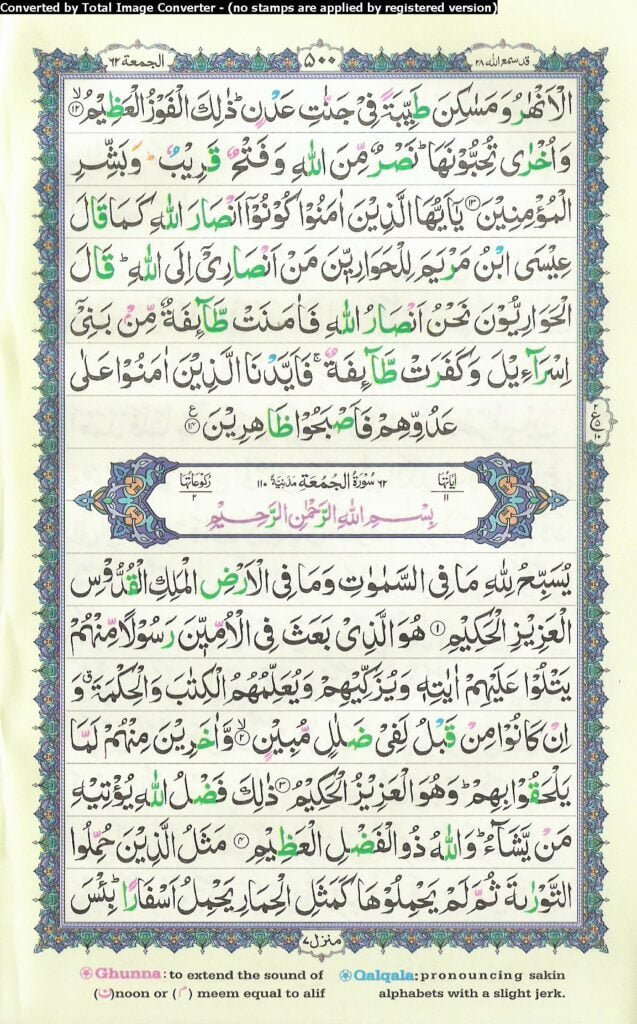 Converted by Total Image Converter - (no stamps are applied by registered version)
قد سمع الله ٢٨
٥٠٠
الجمعة ٦٢
الْاَنْهٰرُ وَمَسٰكِنَ طَيِّبَةً فِیْ جَنّٰتِ عَدْنٍ ؕ ذٰلِكَ الْفَوْزُ الْعَظِیْمُ ۙ﴿۱۲﴾
وَاُخْرٰی تُحِبُّوْنَهَا ؕ نَصْرٌ مِّنَ اللّٰهِ وَفَتْحٌ قَرِیْبٌ ؕ وَبَشِّرِ
الْمُؤْمِنِیْنَ ﴿۱۳﴾ یٰۤاَیُّهَا الَّذِیْنَ اٰمَنُوْا كُوْنُوْۤا اَنْصَارَ اللّٰهِ كَمَا قَالَ
عِیْسَی ابْنُ مَرْیَمَ لِلْحَوَارِیّٖنَ مَنْ اَنْصَارِیْۤ اِلَی اللّٰهِ ؕ قَالَ
الْحَوَارِیُّوْنَ نَحْنُ اَنْصَارُ اللّٰهِ فَاٰمَنَتْ طَّآئِفَةٌ مِّنْۢ بَنِیْۤ
اِسْرَآءِیْلَ وَكَفَرَتْ طَّآئِفَةٌ ۚ فَاَیَّدْنَا الَّذِیْنَ اٰمَنُوْا عَلٰی
عَدُوِّهِمْ فَاَصْبَحُوْا ظَاهِرِیْنَ ﴿۱۴﴾
ع
٥
١٠
اٰیَاتُهَا ١١
٦٢ سُوْرَةُ الْجُمُعَةِ مَدَنِیَّةٌ ١١٠
رُكُوْعَاتُهَا ٢
بِسْمِ اللّٰهِ الرَّحْمٰنِ الرَّحِیْمِ
یُسَبِّحُ لِلّٰهِ مَا فِی السَّمٰوٰتِ وَمَا فِی الْاَرْضِ الْمَلِكِ الْقُدُّوْسِ
الْعَزِیْزِ الْحَكِیْمِ ﴿۱﴾ هُوَ الَّذِیْ بَعَثَ فِی الْاُمِّیّٖنَ رَسُوْلًا مِّنْهُمْ
یَتْلُوْا عَلَیْهِمْ اٰیٰتِهٖ وَیُزَكِّیْهِمْ وَیُعَلِّمُهُمُ الْكِتٰبَ وَالْحِكْمَةَ ۗ وَ
اِنْ كَانُوْا مِنْ قَبْلُ لَفِیْ ضَلٰلٍ مُّبِیْنٍ ۙ﴿۲﴾ وَّاٰخَرِیْنَ مِنْهُمْ لَمَّا
یَلْحَقُوْا بِهِمْ ؕ وَهُوَ الْعَزِیْزُ الْحَكِیْمُ ﴿۳﴾ ذٰلِكَ فَضْلُ اللّٰهِ یُؤْتِیْهِ
مَنْ یَّشَآءُ ؕ وَاللّٰهُ ذُو الْفَضْلِ الْعَظِیْمِ ﴿۴﴾ مَثَلُ الَّذِیْنَ حُمِّلُوا
التَّوْرٰىةَ ثُمَّ لَمْ یَحْمِلُوْهَا كَمَثَلِ الْحِمَارِ یَحْمِلُ اَسْفَارًا ؕ بِئْسَ
منزل ٧
Ghunna: to extend the sound of
(ن) noon or (م) meem equal to alif
Qalqala: pronouncing sakin
alphabets with a slight jerk.